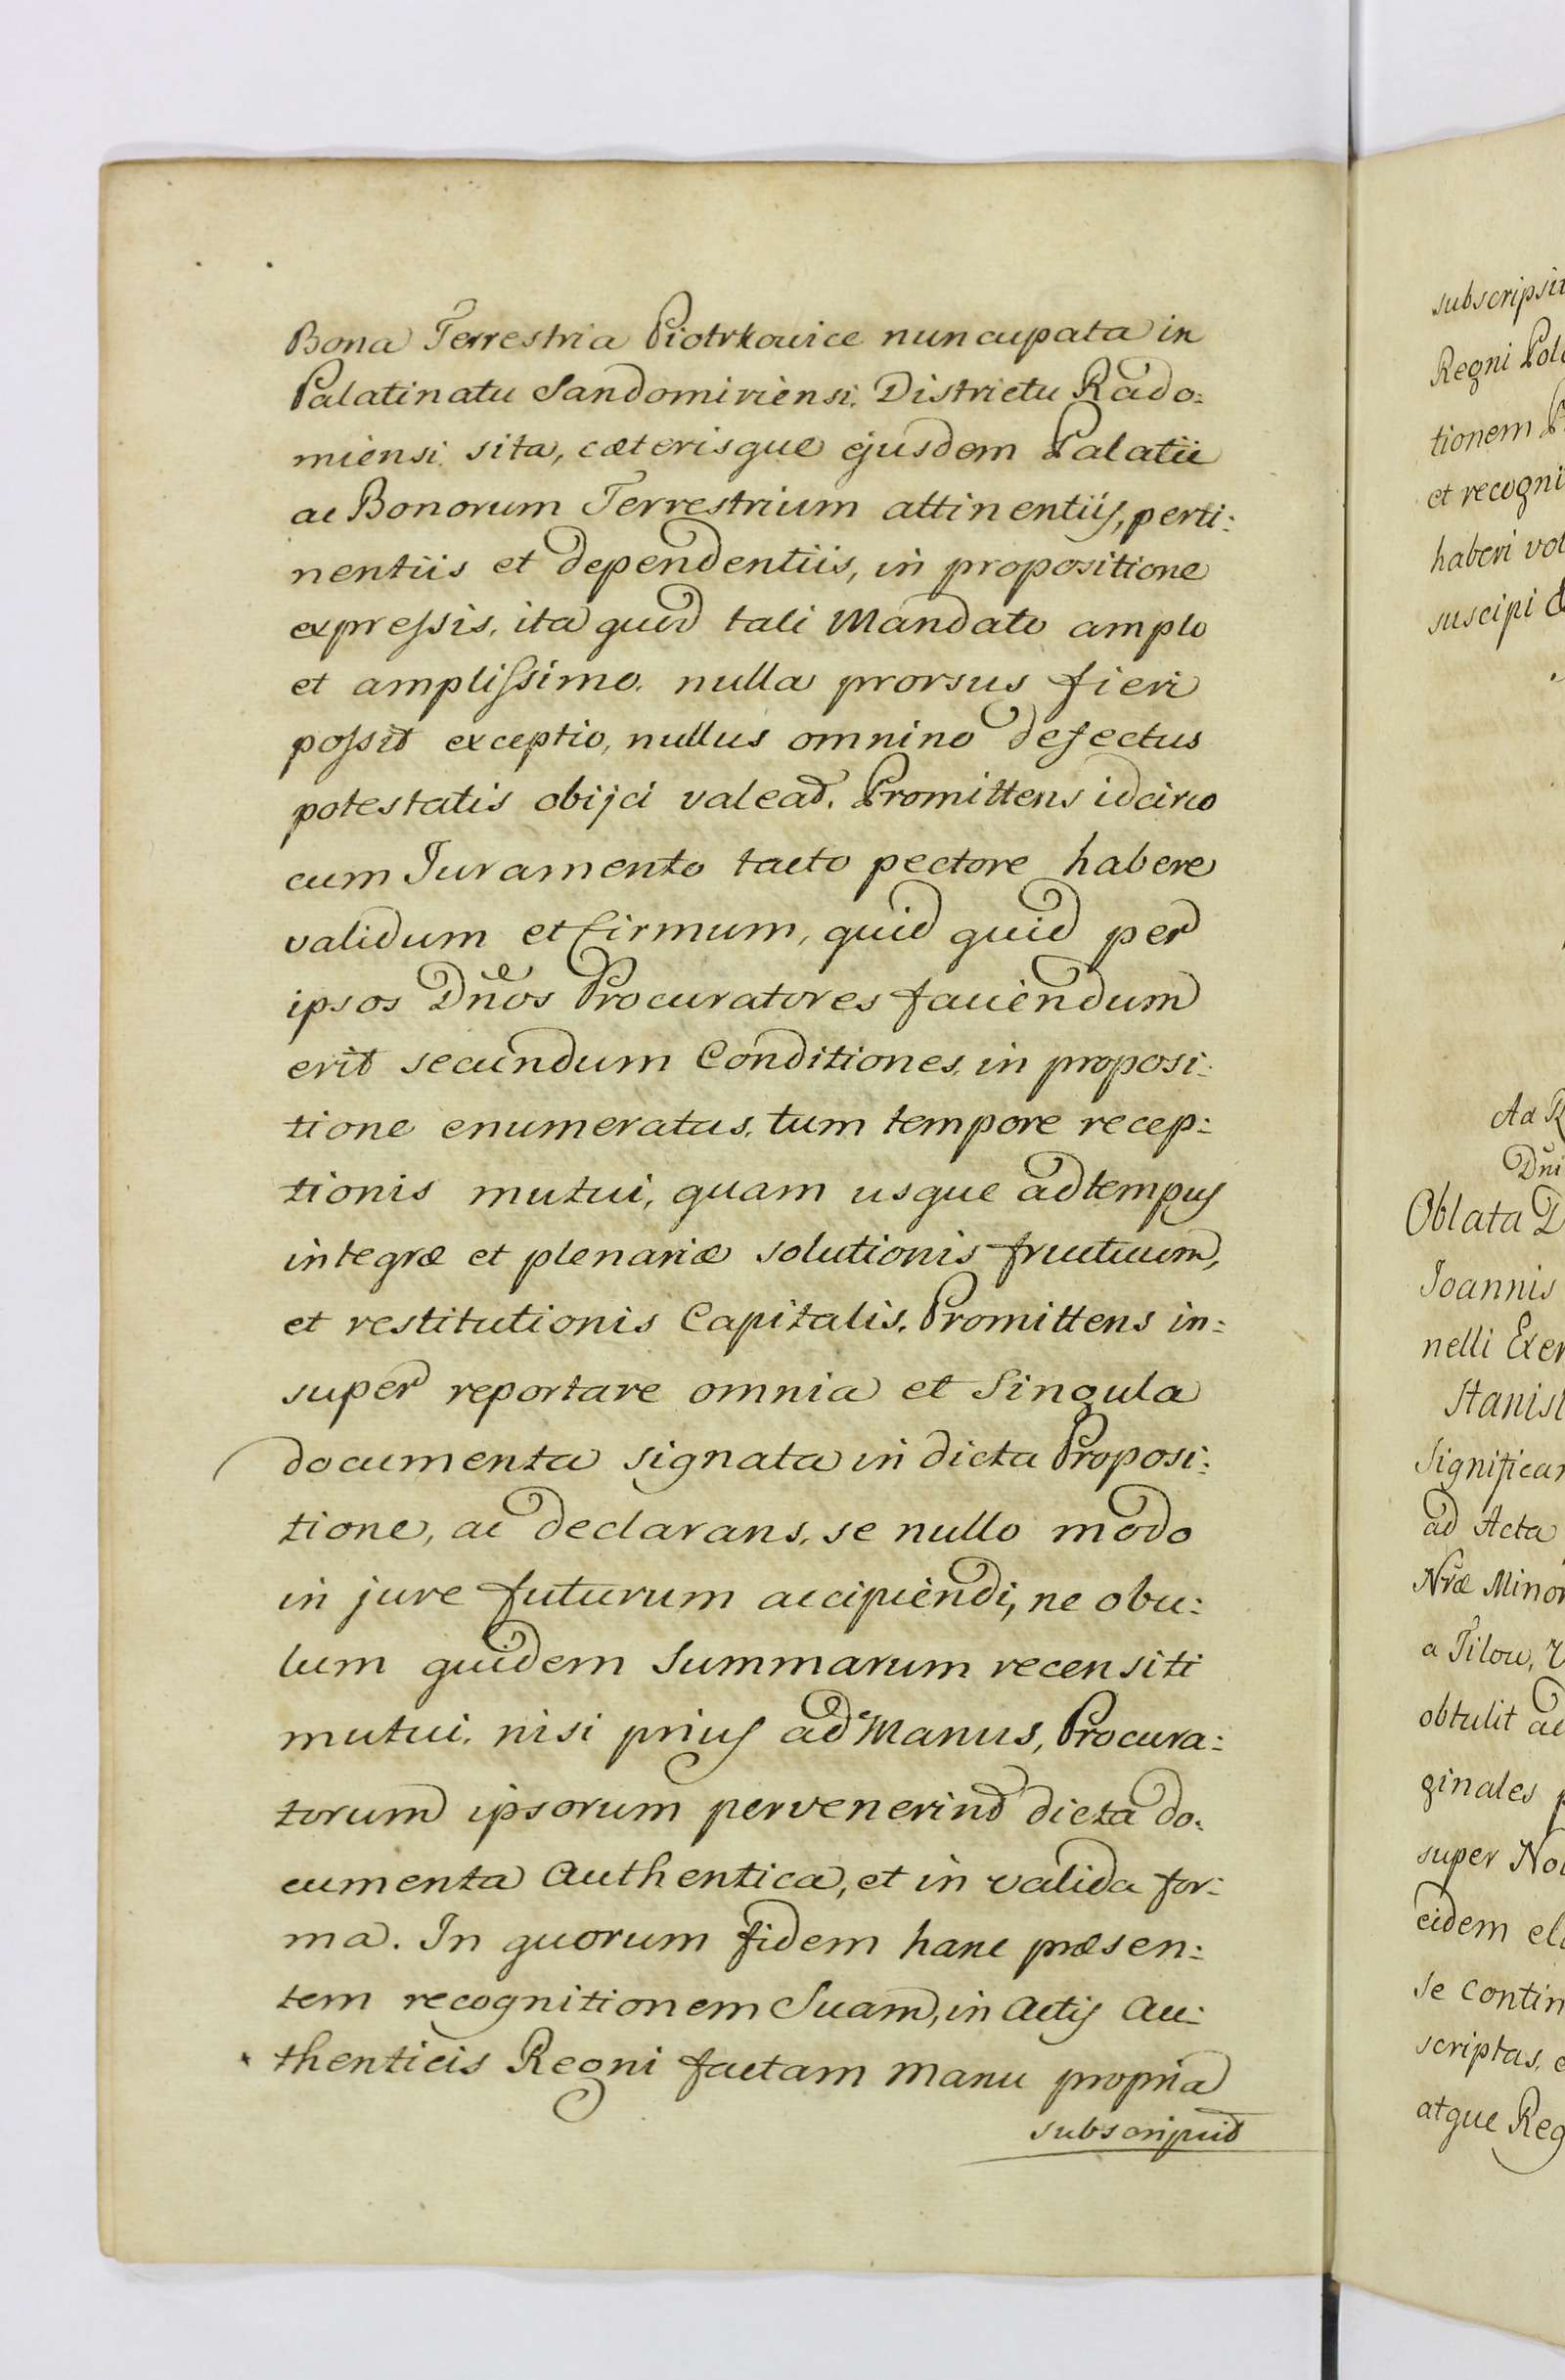 Bona Terrestria Piotrkovice nuncupata in
Palatinatu Sandomiriensi, Districtu Rado:
miensi sita, cæterisque ejusdem Palatii
ac Bonorum Terrestrium attinentiis, perti:
nentiis et dependentiis, in propositione
expressis, ita quod tali Mandato amplo
et amplissimo, nulla prorsus fieri
possit exceptio, nullus omnino defectus
potestatis obijci valeat. Promittens idcirco
cum Juramento tacto pectore habere
validum et firmum, quid quid per
ipsos Dños Procuratores faciendum
erit secundum Conditiones, in proposi:
tione enumeratas, tum tempore recep:
tionis mutui, quam usque ad tempus
integræ et plenariæ solutionis fructuum,
et restitutionis Capitalis. Promittens in:
super reportare omnia et Singula
documenta signata in dicta Proposi:
tione, ac declarans, se nullo modo
in jure futurum accipiendi, ne obu:
lum quidem Summarum recensiti
mutui, nisi prius ad Manus, Procura:
torum ipsorum pervenerint dicta do:
cumenta Authentica, et in valida for:
ma. In quorum fidem hanc præsen:
tem recognitionem Suam, in Actis Au:
thenticis Regni factam Manu propria
subscripsit
subscripsit
Regni
tionem
et recogni
haberi
suscipi
Ad
Dni
Oblata
Joannis
nelli
Stanisl
Significan
ad Acta
Nræ Minor
a Tilou,
obtulit
ginales
super
eidem
se contin
scriptas,
atque Reg